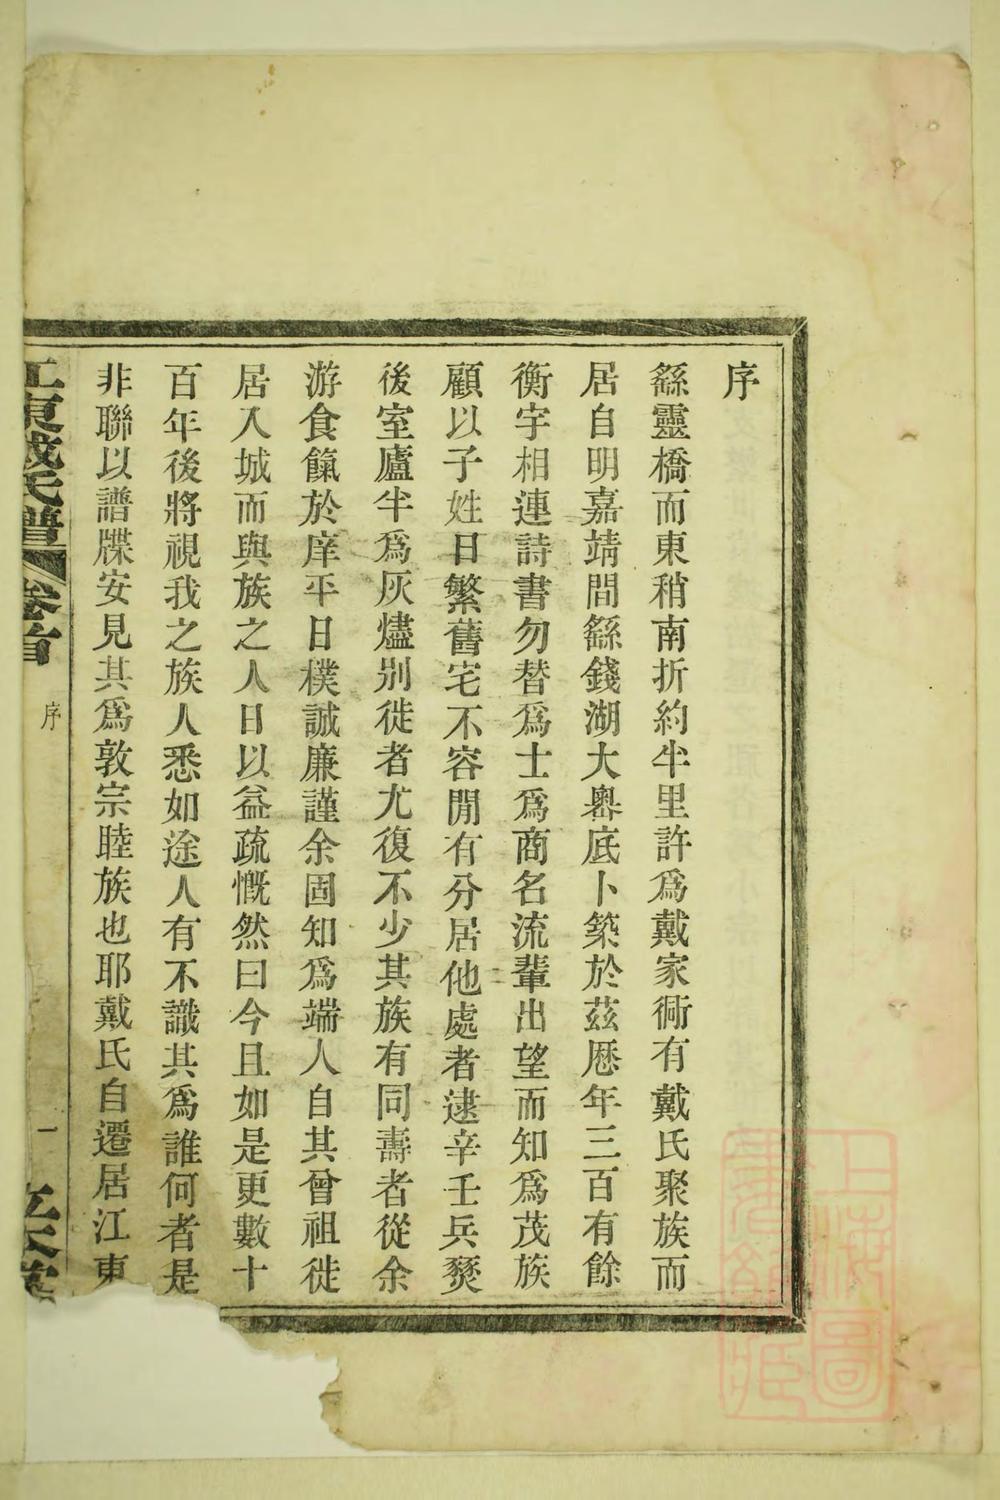 序
繇靈橋而東稍南折約半里許爲戴家衕有戴氏聚族而
居自明嘉靖間繇錢湖大嶴底卜築於茲厯年三百有餘
衡宇相連詩書勿替爲士爲商名流輩出望而知爲茂族
顧以子姓日繁舊宅不容閒有分居他處者逮辛壬兵燹
後室廬半爲灰燼别徙者尤復不少其族有同壽者從余
游食餼於庠平日樸誠廉謹余固知爲端人自其曾祖徙
居入城而與族之人日以益疏慨然曰今且如是更數十
百年後將視我之族人悉如途人有不識其爲誰何者是
非聯以譜牒安見其爲敦宗睦族也耶戴氏自遷居江東
江東戴氏譜 卷首
序
一
上海圖書館藏